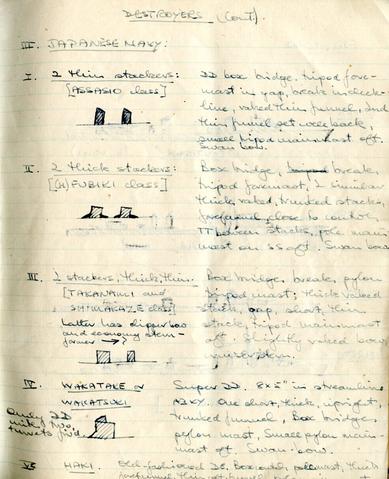 DESTROYERS (Cont).
III. JAPANESE NAVY:
I. 2 thin stackers:
[ASSASIO class]
DD box bridge, tripod fore-
mast in gap, break in deck-
line, raked thin funnel, 2nd
thin funnel set well back,
small tripod mainmast aft.
Swan bow.
II. 2 thick stackers:
[(H)FUBIKI class]
Box bridge, break,
tripod foremast, 2 similar
thick, raked, trunked stacks,
close to
TT between stacks, pole main
mast on ss aft. Swan bow
III. stackers, thick, thin.
[TAKANAMI and
SHIMAKAZE class]
Latter has clipper bow
and economy stem-
former →?
Box bridge, break, pylon
tripod mast, thick raked
stack, gap, short, thin
stack, tripod mainmast
aft. Slightly raked bow,
IV. WAKATAKE or
WAKATSUKI
only DD
with two
turrets fwd.
Super DD. 8x5" in streamline
One short, thick, upright,
trunked funnel, Box bridges,
pylon mast, Small pylon main-
mast aft. Swan bow.
HAKI. Old-fashioned DD, Box mast, thick